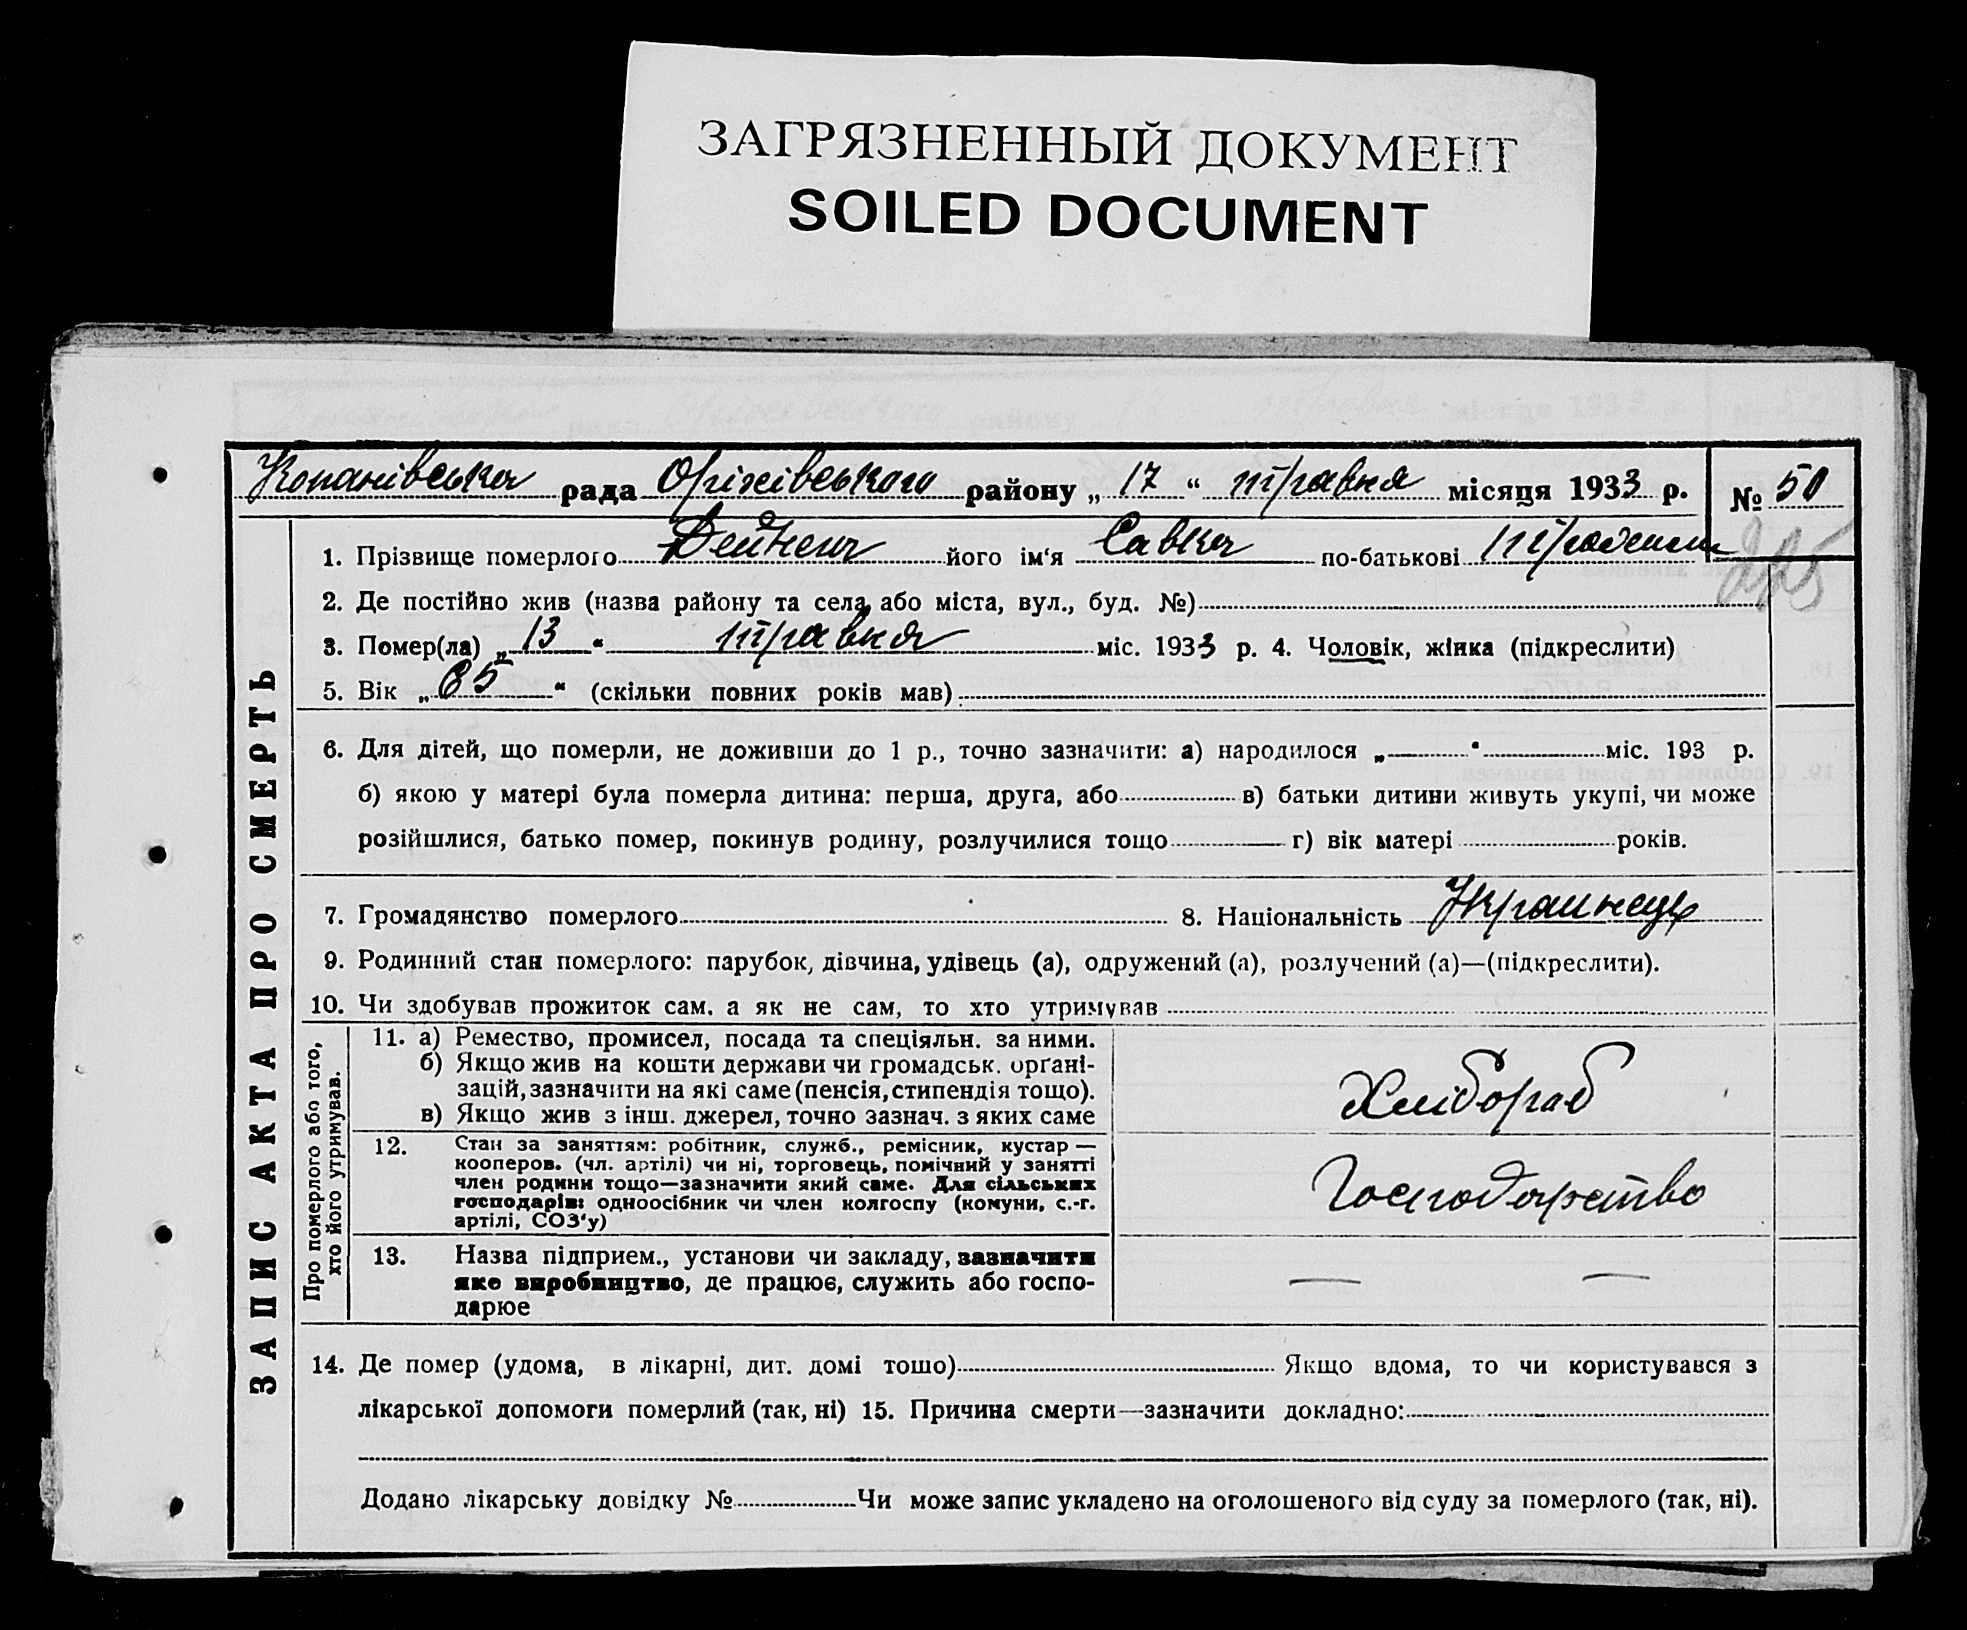 ЗАГРЯЗНЕННЫЙ ДОКУМЕНТ
SOILED DOCUMENT
Копанівська рада Оріхівського району „ 17 “ травня місяця 1933 р. № 50
1. Прізвище померлого Дейнега його ім‘я Савка по-батькові
225
2. Де постійно жив (назва району та села, або міста, вул., буд. №)
3. Помер(ла) „ 13 “ травня міс. 1933 р. 4. Чоловік, жінка (підкреслити)
5. Вік „ 65 “ (скільки повних років мав)
6. Для дітей, що померли, не доживши до 1 р., точно зазначити: а) народилося „ “ міс. 193 р.
б) якою у матері була померла дитина: перша, друга, або в) батьки дитини живуть укупі, чи може
розійшлися, батько помер, покинув родину, розлучилися тощо г) вік матері років.
7. Громадянство померлого 8. Національність Українець
9. Родинний стан померлого: парубок, дівчина, удівець (а), одружений (а), розлучений (а)—(підкреслити).
10. Чи здобував прожиток сам, а як не сам, то хто утримував
ЗАПИС АКТА ПРО СМЕРТЬ
Про померлого або того,
хто його утримував.
11. а) Ремество, промисел, посада та спеціяльн. за ними.
б) Якщо жив на кошти держави чи громадськ. орґані-
зацій, зазначити на які саме (пенсія, стипендія тощо).
в) Якщо жив з інш. джерел, точно зазнач. з яких саме
Хлібороб
12. Стан за заняттям: робітник, служб., ремісник, кустар —
кооперов. (чл. артілі) чи ні, торговець, помічний у занятті
член родини тощо—зазначити який саме. Для сільських
господарів: одноосібник чи член колгоспу (комуни, с.-г.
артілі, СОЗ‘у)
Господарство
13. Назва підприєм., установи чи закладу, зазначити
яке виробництво, де працює, служить або госпо-
дарює
— —
14. Де помер (удома, в лікарні, дит. домі тошо) Якщо вдома, то чи користувався з
лікарської допомоги померлий (так, ні) 15. Причина смерти—зазначити докладно:
Додано лікарську довідку № Чи може запис укладено на оголошеного від суду за померлого (так, ні).